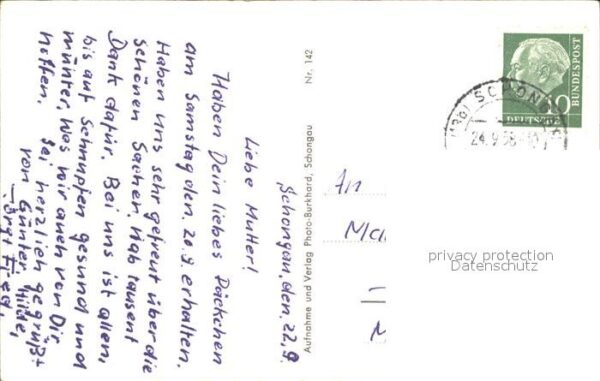 Schongau, den 22.9.
Liebe Mutter!
Haben Dein liebes Päckchen
am Samstag den 20.9 erhalten.
Haben uns sehr gefreut über die
schönen Sachen. Hab tausent
Dank dafür. Bei uns ist allen,
bis auf Schnupfen gesund und
munter, Was wir auch von Dir
hoffen.
Sei herzlich gegrüßt
von Günter, Hilde,
Aufnahme und Verlag Photo-Burkhard, Schongau
Nr. 142
An
DEUTSCHE
BUNDESPOST
10
(13b) SCHONG
24.9.58
privacy protection
Datenschutz